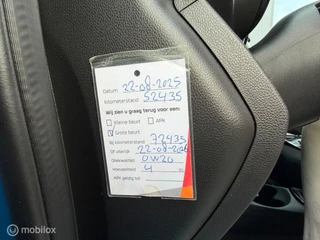 Datum 22-08-2025
Kilometerstand 52435
Wij zien u graag terug voor een:
Kleine beurt APK
Grote beurt
Bij kilometerstand 72435
Of uiterlijk 22-08-2026
Oliekwaliteit 0W20
Hoeveelheid 4
APK geldig tot
© Mobilox